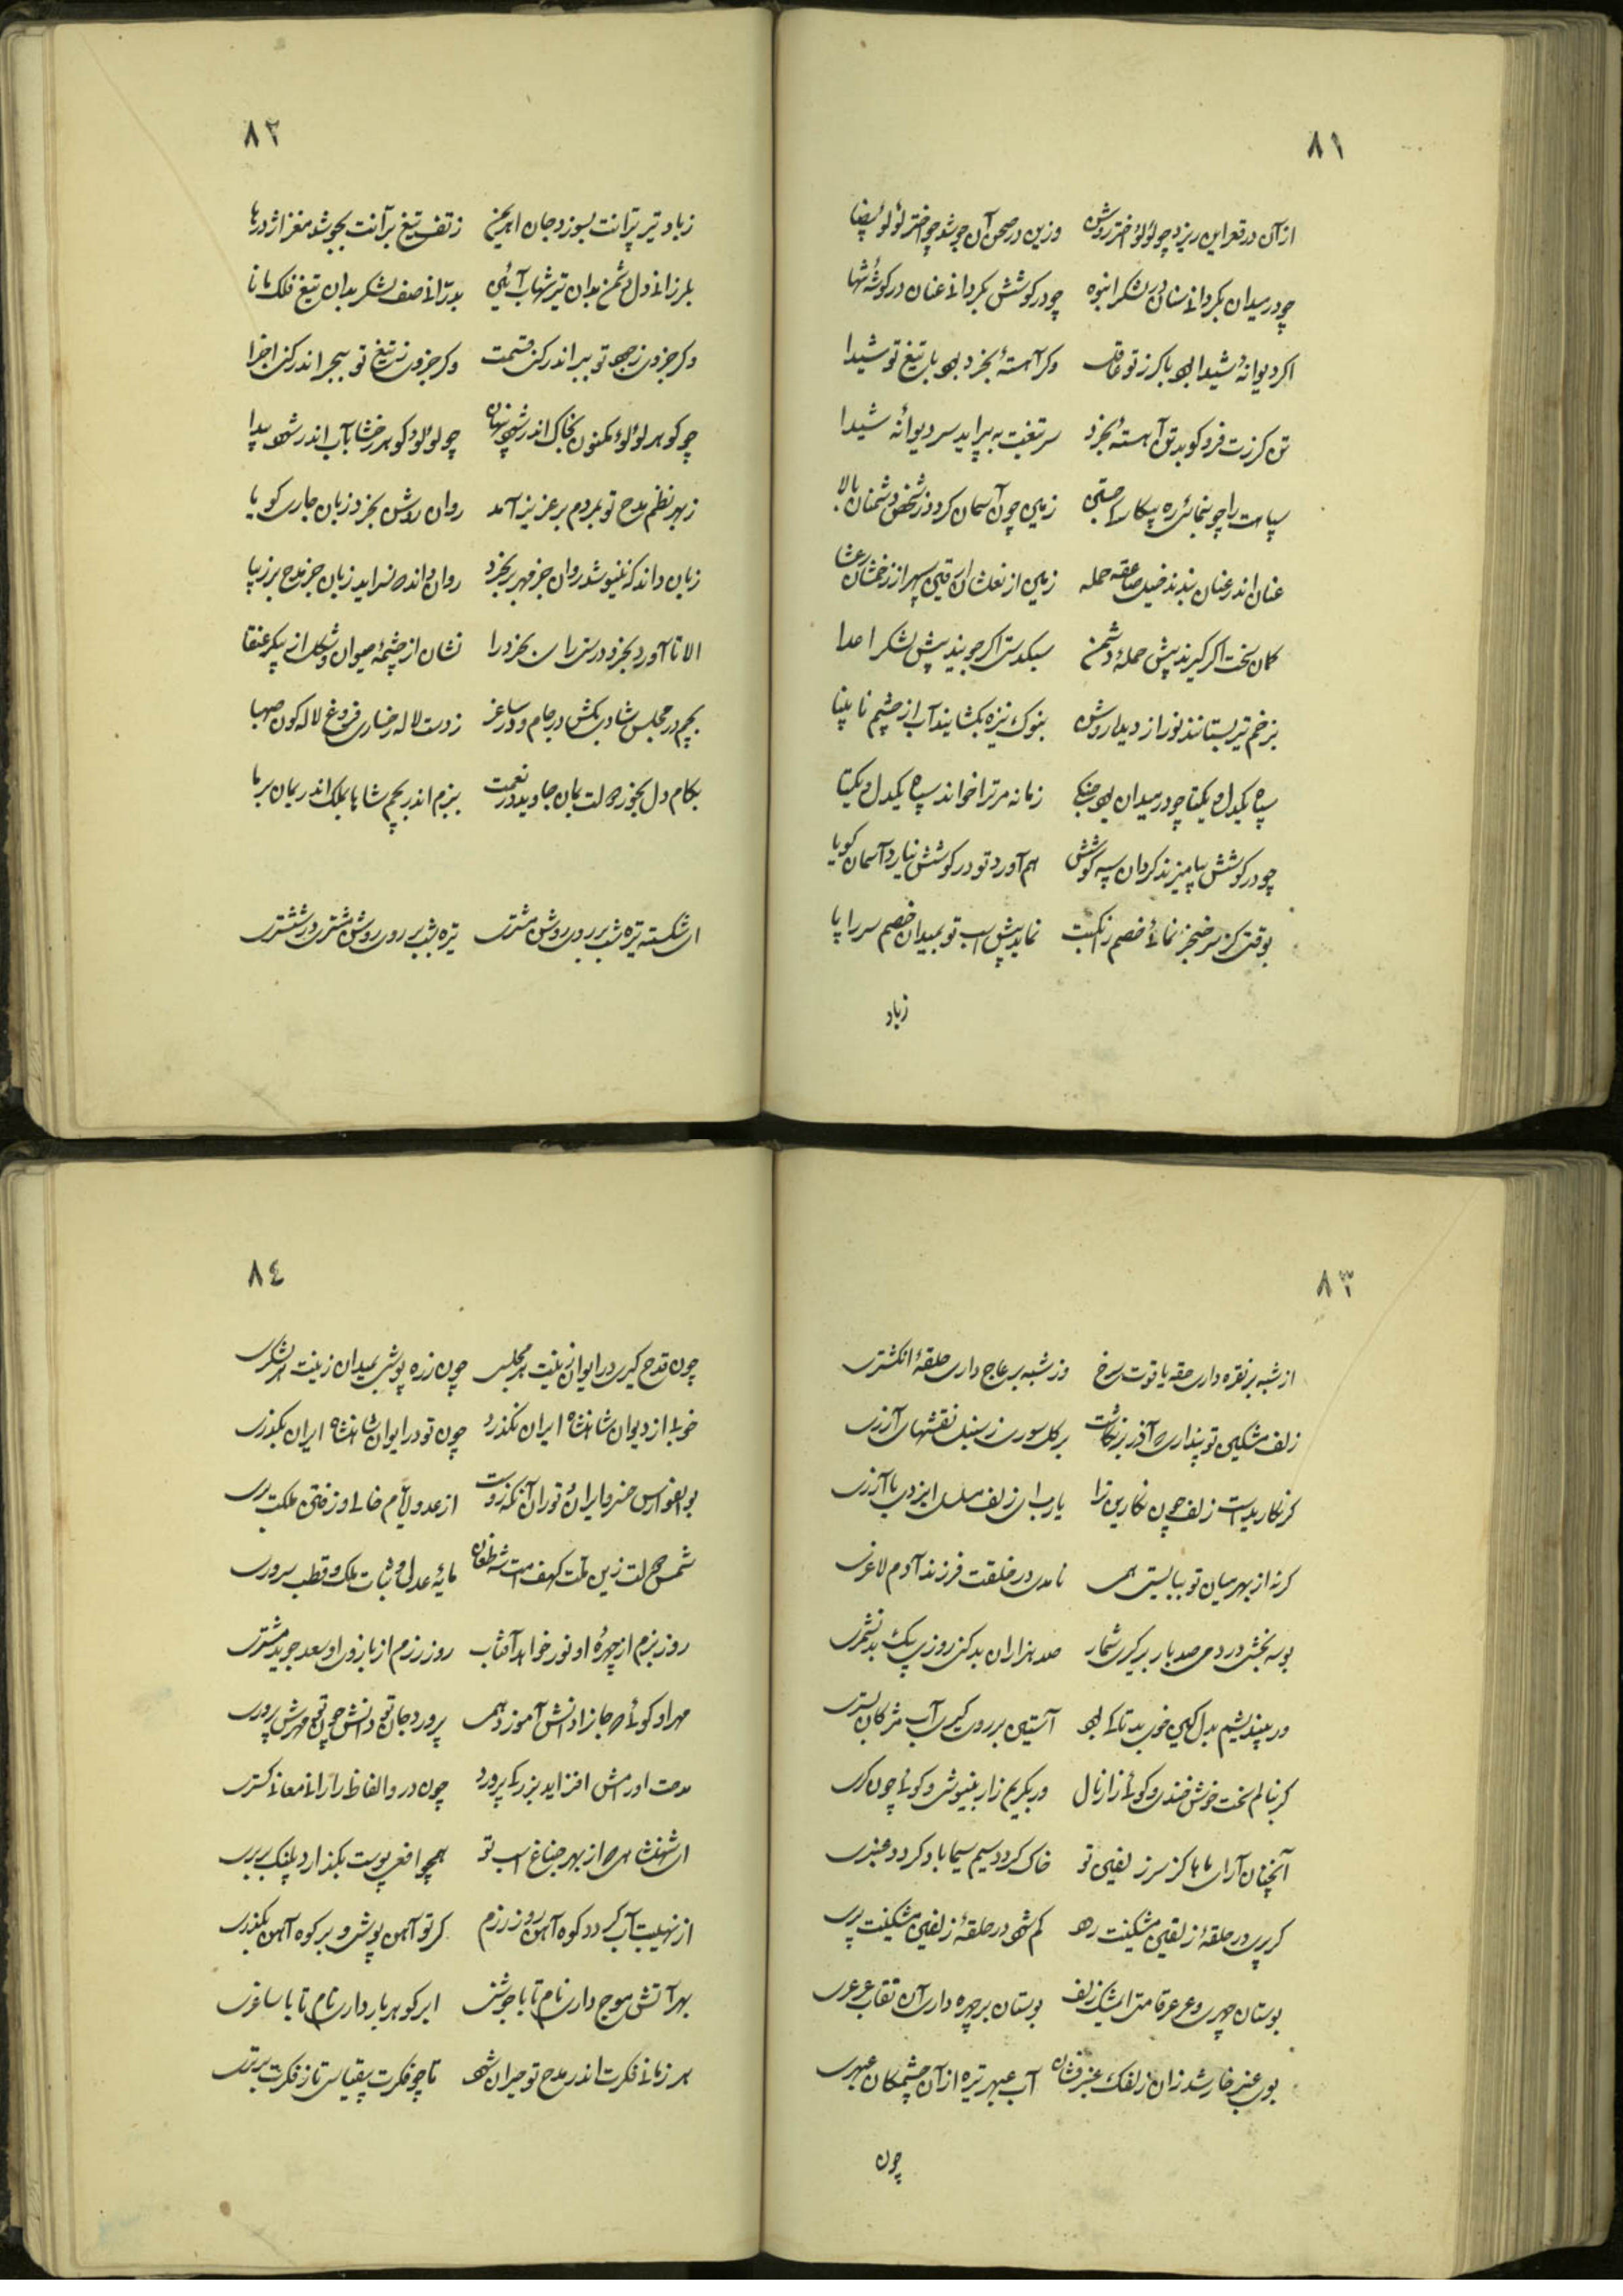 ۸۱
از آن در قعر این ریزد چو لؤلؤ اختر روشن وزین در صحن آن جوشد چو اختر لؤلؤ بیضا
چو در میدان بگردانی سنان در لشکر انبوه چو در کوشش بگردانی عنان در گوشهٔ تنها
اگر دیوانهٔ شیدا بود با گرز تو عاقل وگر آهستهٔ بخرد بود با تیغ تو شیدا
تن گرزت فرو کوبد تن آهستهٔ بخرد سر تیغت به پیراید سر دیوانهٔ شیدا
سپاهت را چو بنمائی ره پیکار بدخواهان زمین چون آسمان گردد ز شخص دشمنان بالا
عنان اندر عنان بندند خیل صاعقه حمله زمین از نعلشان سپهر از رخششان رعشا
کمان سخت اگر گیرند پیش حملهٔ دشمن سبکدستی اگر جویند پیش لشکر اعدا
بزخم تیر بستانند نور از دیدهٔ روشن بنوک نیزه بگشایند آب از چشم نابینا
سپاه یکدل و یکتا چو در میدان بود جنگی زمانه مر ترا خواند سپاه یکدل و یکتا
چو در کوشش بیامیزند گردان سپه کوشش هم آورد تو در کوشش نیارد آسمان گویا
بوقتی کز سر خنجر نمائی خصم را نکبت نماید پیش اسب تو بمیدان خصم سر را پا
زباد
۸۲
زباد تیر پرانت بسوزد جان اهریمن زتف تیغ برانت بجوشد مغز اژدرها
بلرزانی دل دشمن بدان تیر شهاب آئین بدرانی صف لشکر بدان تیغ فلک مانا
وگر جزوی ز جود تو ببر اندر کنی قسمت وگر جزوی ز تیغ تو ببحر اندر کنی اجزا
چو گوهر لؤلؤ مکنون بخاک اندر شود پنهان چو لؤلؤ گوهر رخشا بآب اندر شود پیدا
ز بهر نظم مدح تو بمردم بر عزیز آمد روان روشن بخرد زبان جاری گویا
زبان داند که ننیوشد روان جز مهر بر بخرد روان داند که نسراید زبان جز مدح بر زیبا
الا تا آورد بخرد درستی را سوی بخرد را نشان از چشمهٔ حیوان و شکل از پیکر عنقا
بچم در مجلس شادی بکش در جام و در ساغر ز دست لاله رخساری فروغ لاله گون صهبا
بکام دل بخور دولت بمان جاوید در نعمت ببزم اندر بچم شاها بملک اندر بمان برپا
ای شکسته تیره شب بر روی روشن مشتری تیره شب بر روی روشن مشتری در ششتری
۸۳
از شبه بر نقره داری حقه یاقوت سرخ وز شبه بر عاج داری حلقهٔ انگشتری
زلف مشکین تو پنداری که آذر برنگاشت بر گل سوری ز سنبل نقشهای آزری
گر نگاریدست زلف چون نگارین ترا یارب ای زلف مسلسل ایزدی یا آزری
گرنه از بهر میان تو ببایستی همی نامدی در خلقت فرزند آدم لاغری
بوسه بخشی در دمی صد بار برگیری شمار صد هزاران بد کنی روزی یک بد نشمری
ور بیندیشم بدل کین خوی بد تا کی بود آستین بر روی گیری آب مژگان بستری
گر بنالم سخت خوش خندی و گوئی زار نال ور بگریم زار بنیوشی و گوئی چون گری
آنچنان آرای ماها کز سر زلفین تو خاک گردد سیم سیما باد گردد عنبری
گر پری در حلقهٔ زلفین مشکینت رود گم شود در حلقهٔ زلفین مشکینت پری
بوستان چهری و عرعر قامتی ای مشک زلف بوستان بر چهره داری آفت عرعری
بوی عنبر خار شد زان زلفک عنبر فشان آب عبهر تیره از آن چشمکان عبهری
چون
۸٤
چون قدح گیری در ایوان زینت هر مجلسی چون زره پوشی بمیدان زینت هر لشکری
خوبی از دیوان شاهنشاه ایران نگذرد چون تو در ایوان شاهنشاه ایران بگذری
بوالفوارس خسرو ایران و توران آنکه زوست از عدو ایام خالی وز فتن ملکت بری
شمس دولت زین ملت کهف امت شه طغان مایهٔ عدل و ثبات ملک و قطب سروری
روز بزم از چهرهٔ او نور خواهد آفتاب روز رزم از بازوی او سعد جوید مشتری
مهر او گوئی که جانرا دانش آموزد همی پرورد جان تو دانش چون تو مهرش پروری
مدحت او رامش افزاید بزرگی پرورد چون در و الفاظ رانی معانی گستری
ای شهنشاهی که از بهر جناغ اسب تو همچو افعی پوست بگذارد پلنگ بربری
از نهیبت آب گردد کوه آهن روز رزم گر تو آهن پوشی و بر کوه آهن بگذری
بهر آتش موج داری نام تا با جوشنی ابر گوهربار داری نام تا با ساغری
هر زمانی فکرت اندر مدح تو حیران شود تا چو فکرت بیقیاسی تا ز فکرت برتری